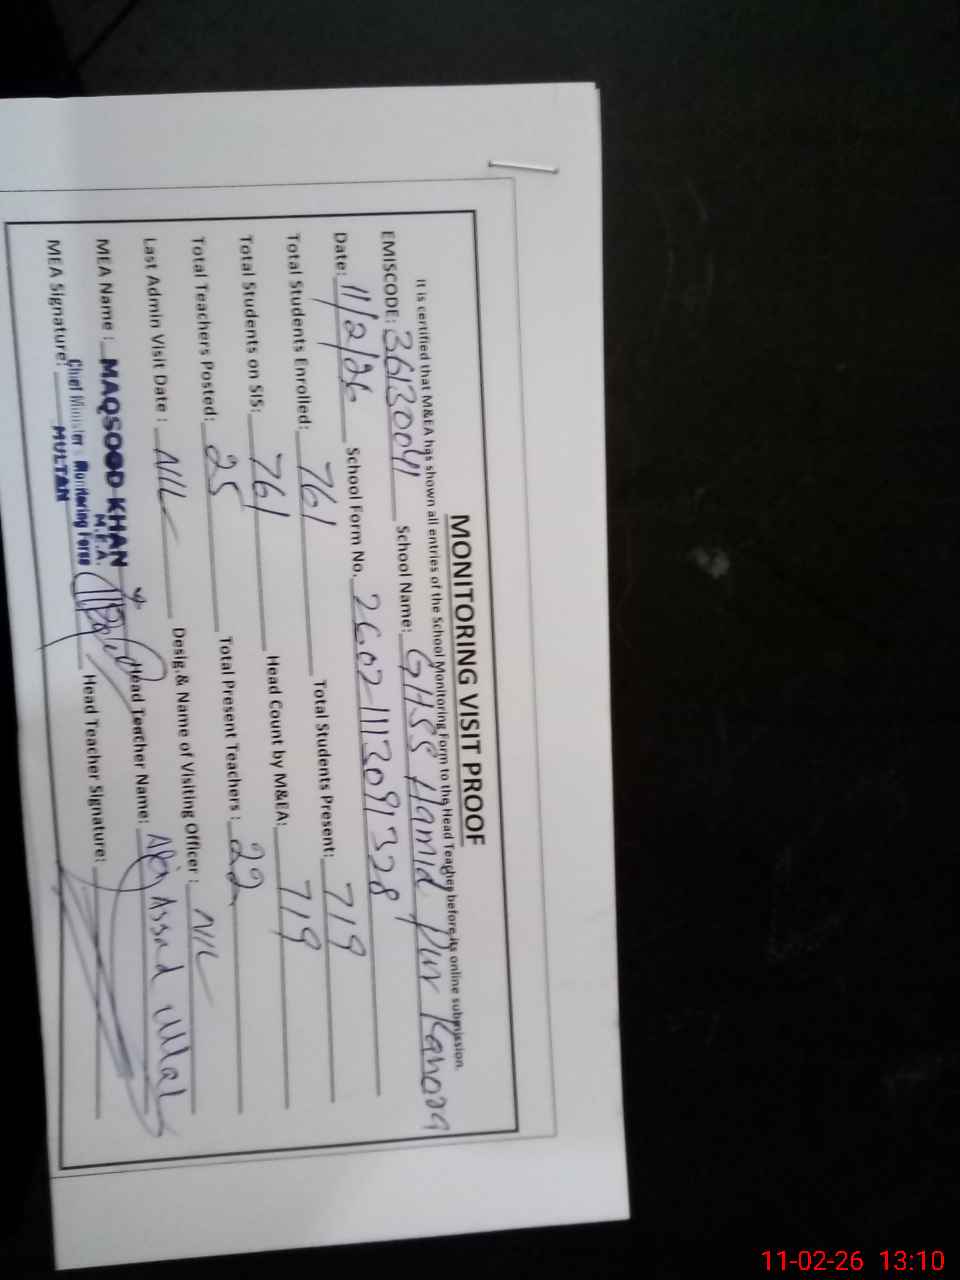 MONITORING VISIT PROOF
It is certified that M&EA has shown all entries of the School Monitoring Form to the Head Teacher before its online submission.
EMISCODE: 36130041 School Name: GHSS Hamid Pur Kanora
Date: 11/2/26 School Form No. 2602-1113091328
Total Students Enrolled: 761 Total Students Present: 719
Total Students on SIS: 761 Head Count by M&EA: 719
Total Teachers Posted: 25 Total Present Teachers: 22
Last Admin Visit Date: NIL Desig.& Name of Visiting Officer: NIL
MEA Name: MAQSOOD KHAN Head Teacher Name: Assad ullah
M.E.A.
Chief Minister's Monitoring Force
MULTAN
MEA Signature: Head Teacher Signature:
11-02-26 13:10